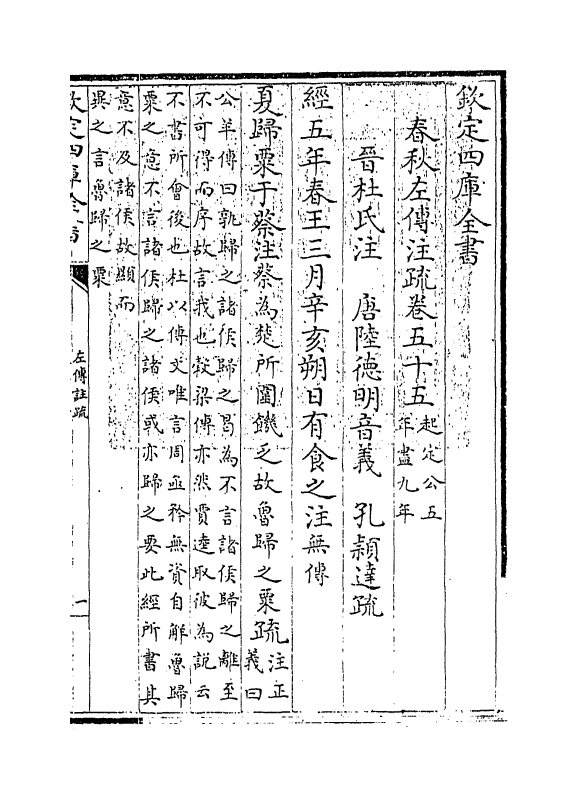 欽定四庫全書
春秋左傳注疏卷五十五
起定公五
年盡九年
晉杜氏注　唐陸德明音義　孔穎達疏
經五年春王三月辛亥朔日有食之注無傳
夏歸粟于蔡注蔡為楚所圍饑乏故魯歸之粟疏
注正
義曰
公羊傳曰孰歸之諸侯歸之曷為不言諸侯歸之離至
不可得而序故言我也榖梁傳亦然賈逵取彼為說云
不書所會後也杜以傳文唯言周亟矜無資自解魯歸
粟之意不言諸侯歸之諸侯或亦歸之要此經所書其
意不及諸侯故顯而
異之言魯歸之粟
欽定四庫全書
左傳註疏
一